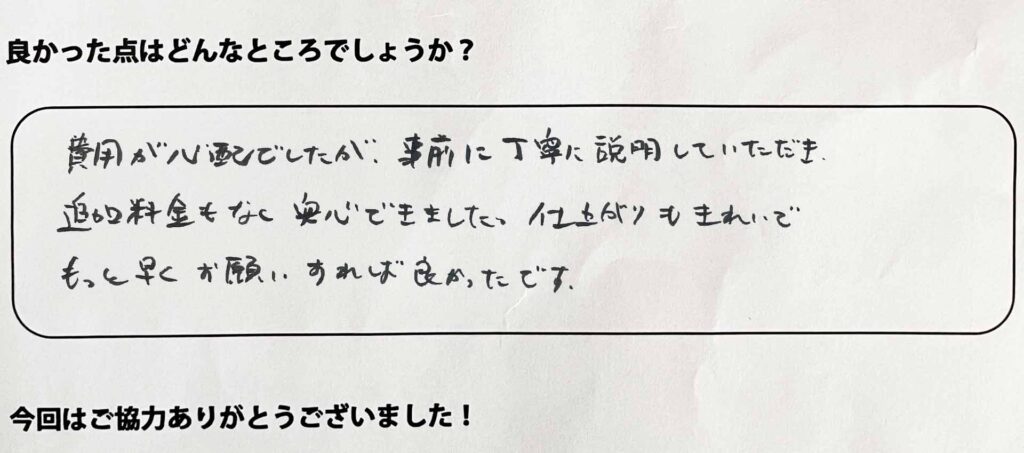 良かった点はどんなところでしょうか？
費用が心配でしたが、事前に丁寧に説明していただき、
追加料金もなく安心できました。仕上がりもきれいで
もっと早くお願いすれば良かったです。
今回はご協力ありがとうございました！